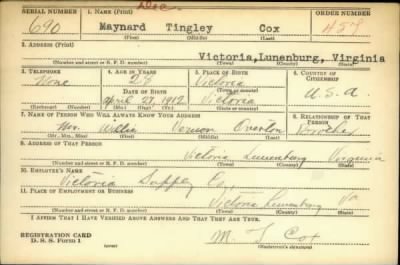 Dec.
SERIAL NUMBER 1. NAME (Print) ORDER NUMBER
690 Maynard Tingley Cox 458
(First) (Middle) (Last)
2. ADDRESS (Print)
Victoria, Lunenburg, Virginia
(Number and street or R. F. D. number) (Town) (County) (State)
3. TELEPHONE 4. AGE IN YEARS 5. PLACE OF BIRTH 6. COUNTRY OF CITIZENSHIP
None 28 Victoria
DATE OF BIRTH (Town or county) U.S.A.
April 27, 1912 Victoria
(Exchange) (Number) (Mo.) (Day) (Yr.) (State or country)
7. NAME OF PERSON WHO WILL ALWAYS KNOW YOUR ADDRESS 8. RELATIONSHIP OF THAT PERSON
Vernon Overton
(Mr., Mrs., Miss) (First) (Middle) (Last)
9. ADDRESS OF THAT PERSON
Victoria Lunenburg Virginia
(Number and street or R. F. D. number) (Town) (County) (State)
10. EMPLOYER'S NAME
Victoria Supply Co.,
11. PLACE OF EMPLOYMENT OR BUSINESS
Victoria Lunenburg Va
(Number and street or R. F. D. number) (Town) (County) (State)
I AFFIRM THAT I HAVE VERIFIED ABOVE ANSWERS AND THAT THEY ARE TRUE.
REGISTRATION CARD
D. S. S. Form 1 (over) M. T. Cox
(Registrant's signature)